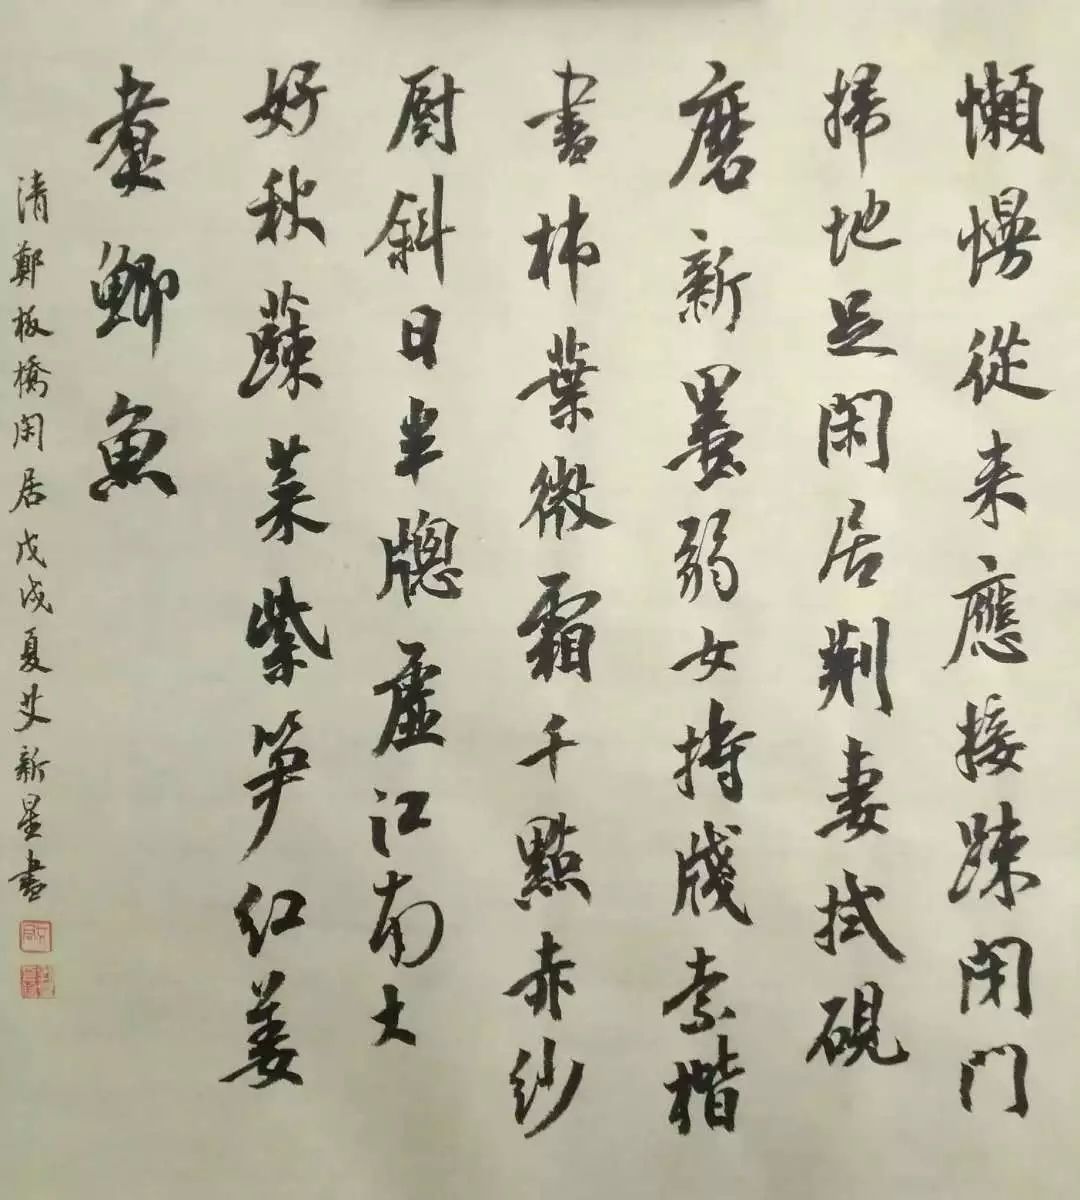 懶慢從来應接踈閉門
掃地足閑居荆妻拭硯
磨新墨弱女持牋索楷
書柿葉微霜千點赤紗
厨斜日半牕虚江南大
好秋蔬菜紫笋红姜
煮鲫魚
清鄭板橋閑居戊戌夏艾新星書